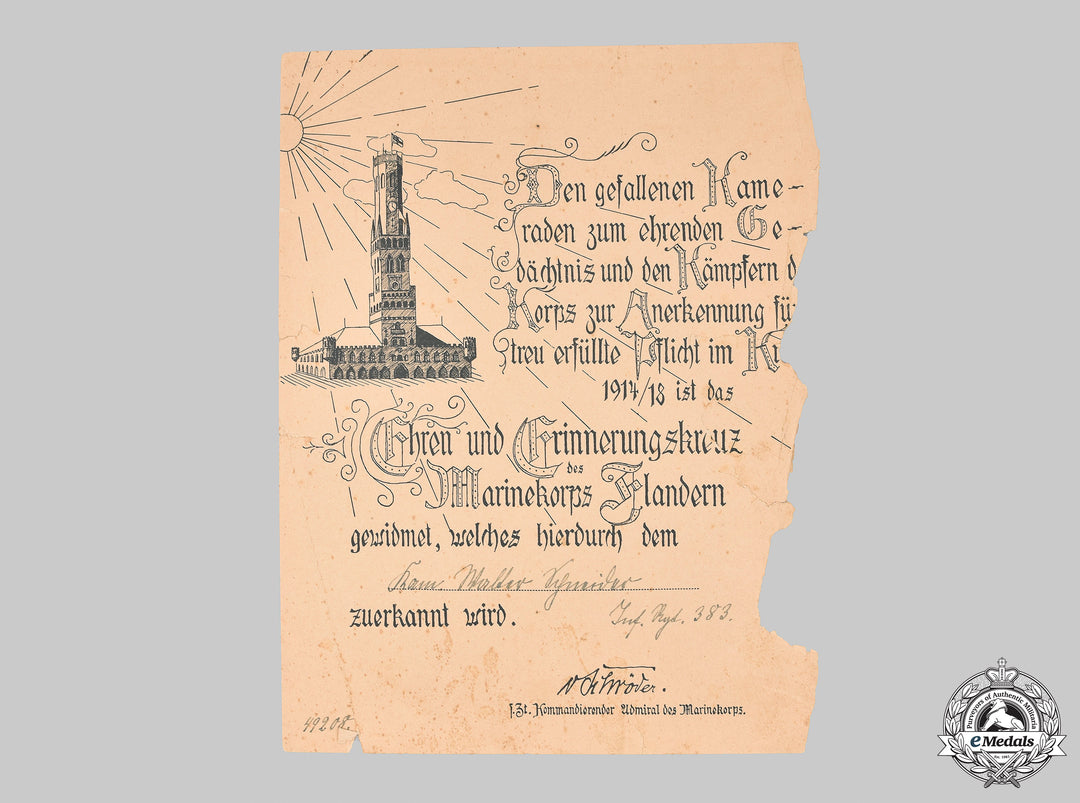 Den gefallenen Kame-
raden zum ehrenden Ge-
dächtnis und den Kämpfern d
Korps zur Anerkennung für
treu erfüllte Pflicht im K
1914/18 ist das
Ehren und Erinnerungskreuz
des
Marinekorps Flandern
gewidmet, welches hierdurch dem
Kam. Walter Schneider
zuerkannt wird.
Inf. Rgt. 383.
v Schröder.
z.Zt. Kommandierender Admiral des Marinekorps.
Purveyors of Authentic Militaria
eMedals